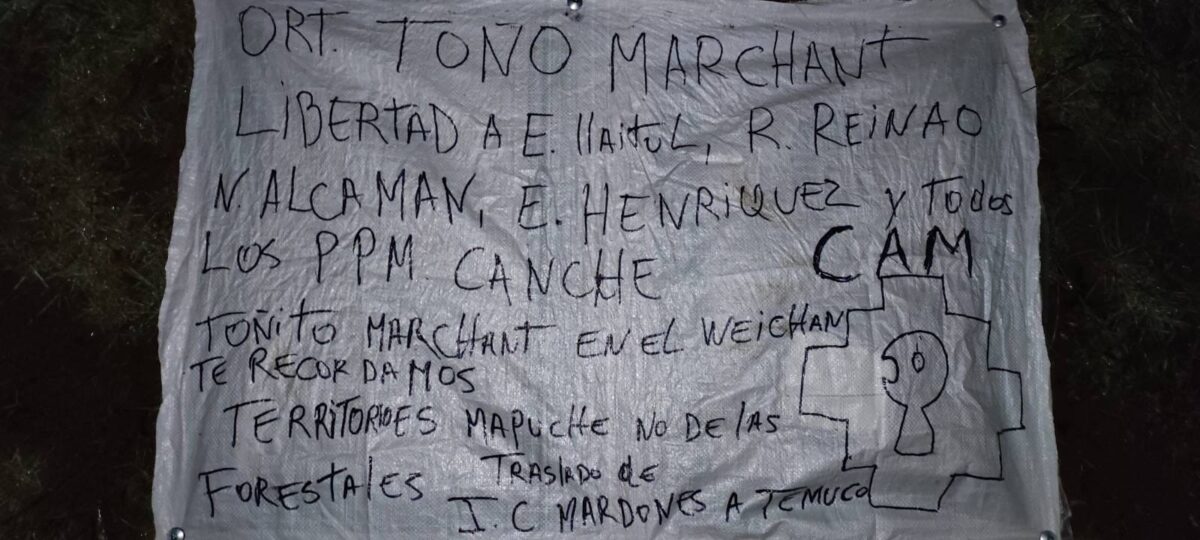 ORT. TOÑO MARCHANT
LIBERTAD A E. llAitUL, R. REINAO
N. ALCAMAN, E. HENRIQUEZ Y TODOS
LOS PPM. CANCHE
CAM
TOÑITO MARCHANT EN EL WEICHAN
TE RECORDAMOS
TERRITORIOES MAPUCHE NO DE lAS
FORESTALES
TRASLADO de
J. C MARDONES A TEMUCO